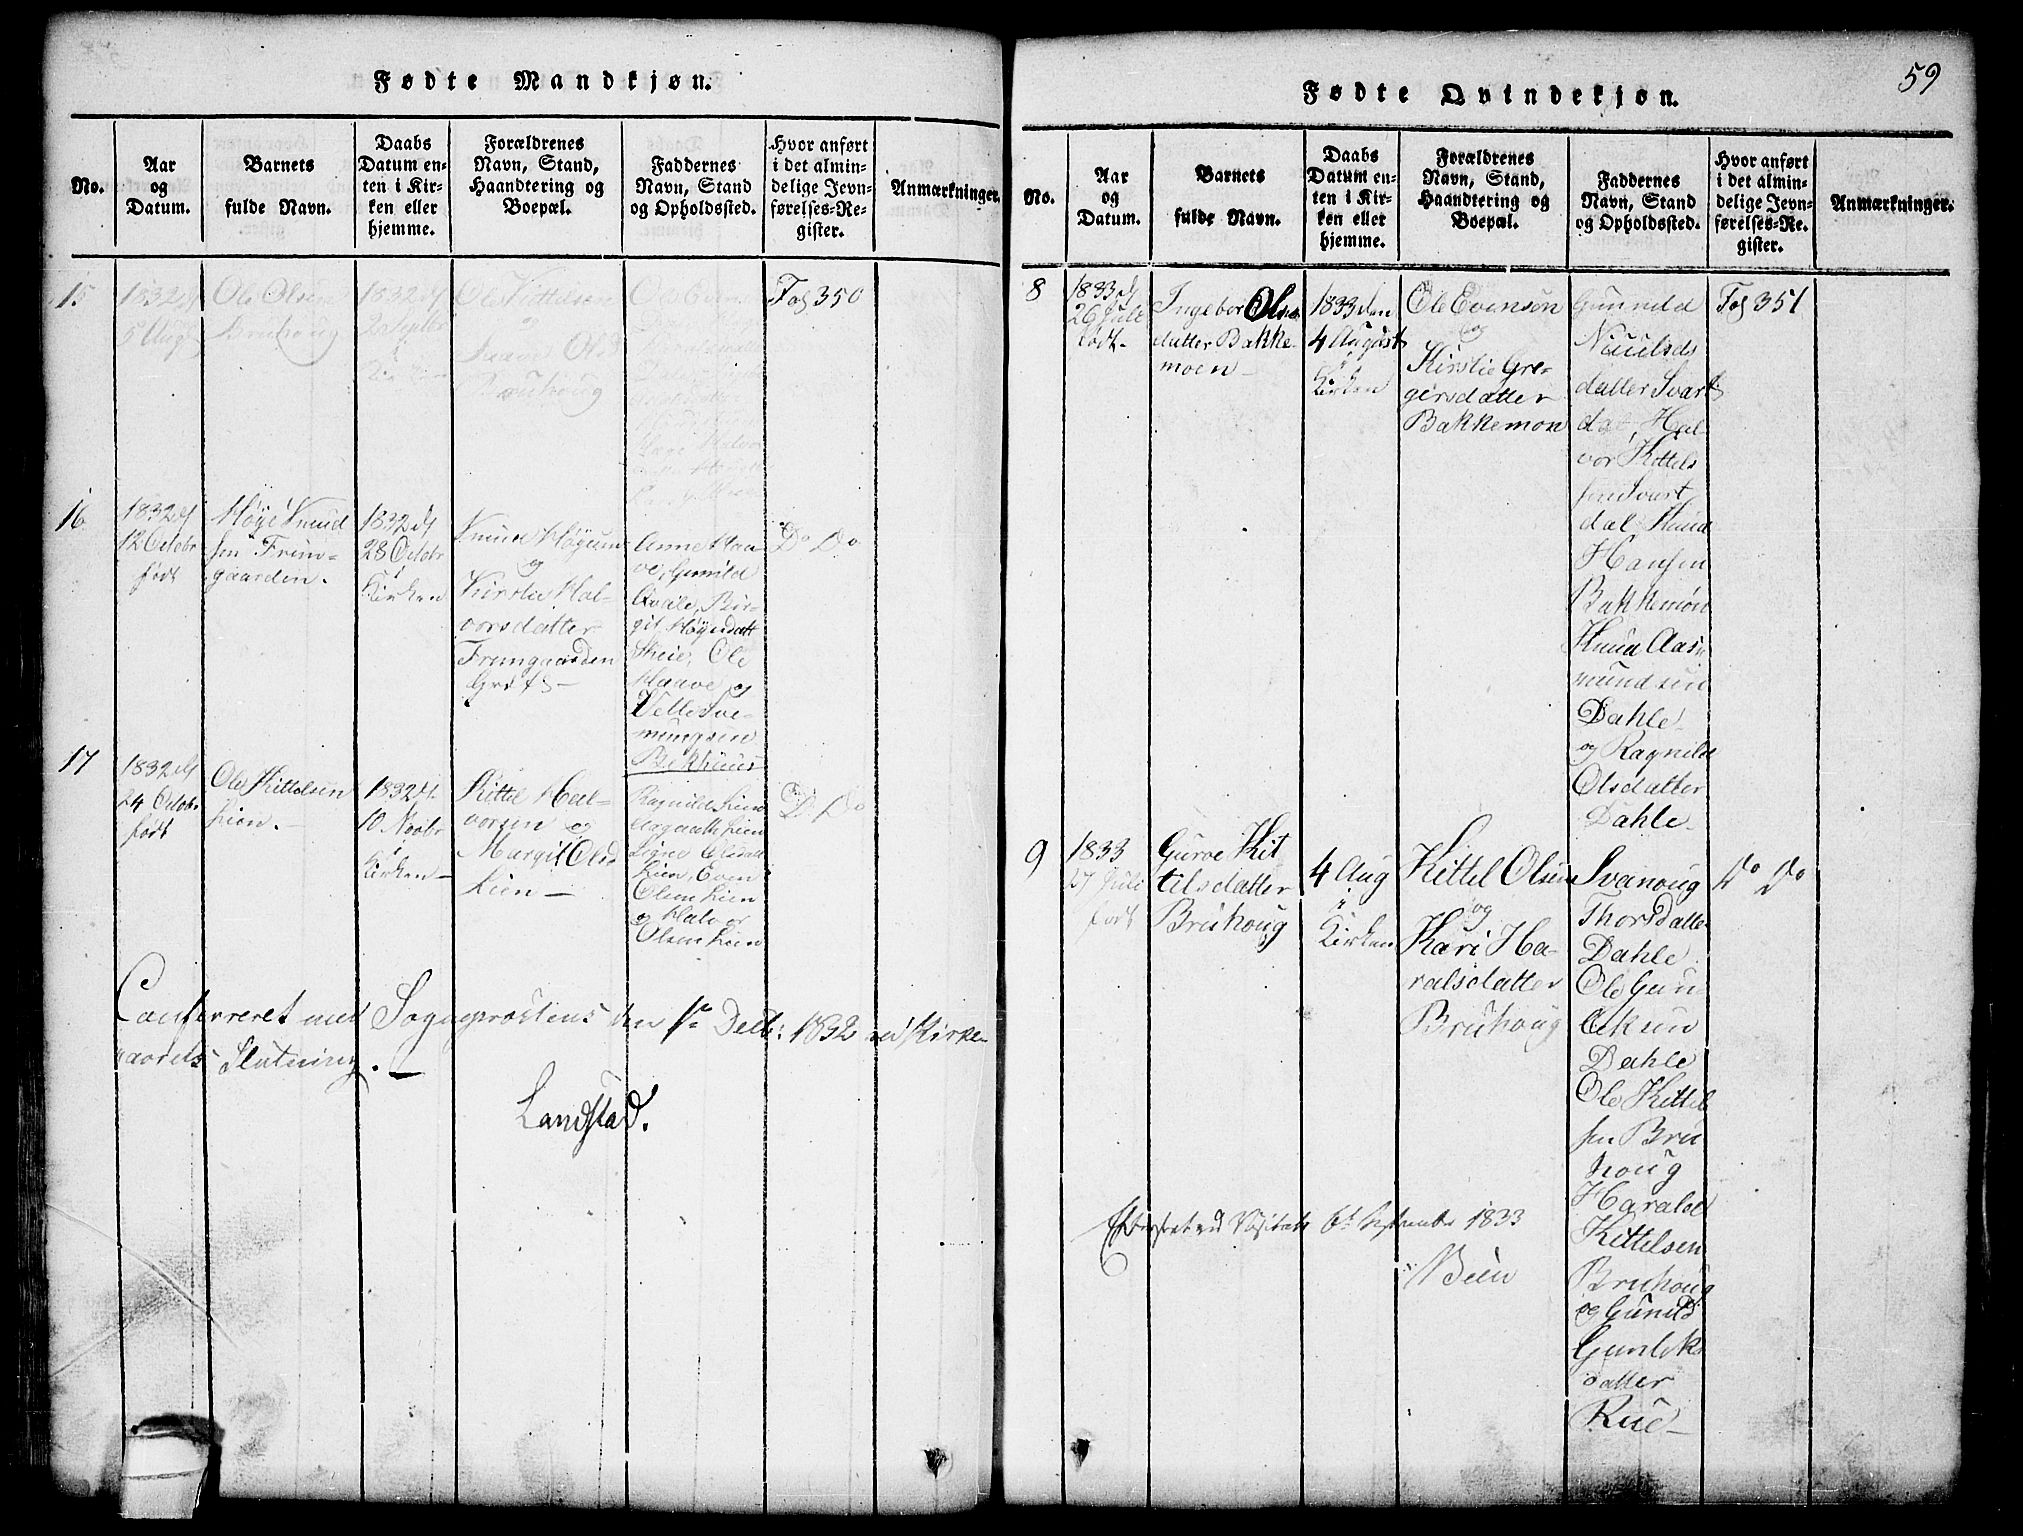 Fødte Mandkjøn.
No.
Aar
og
Datum.
Barnets
fulde Navn.
Daabs
Datum en-
ten i Kir-
ken eller
hjemme.
Forældrenes
Navn, Stand,
Haandtering og
Boepæl.
Faddernes
Navn, Stand
og Opholdssted.
Hvor anført
i det almin-
delige Jevn-
førelses-Re-
gister.
Anmærkninger.
15
1832 d/
5 Aug
Ole Olsen
Bruhoug
1832 d/
2 Septbr
i
Kirken
Ole Kittelsen
og
Olsd
Bruhoug
Ole Even
Fol 350
16
1832 d/
12 Octobr
født
Høye Knud
sen Frun-
gaarden.
1832 d/
28 Octobr
i
Kirken
Knud Høyesen
og
Kirstie Hal-
vorsdatter
Frungaarden
Anne Haa-
ve, Gunild
Qvale, Bir-
git Høyesdatt
Skeie, Ole
Haave og
Vetle Sve-
nungsen
Bekhuus
Do Do
17
1832 d/
24 Octobr
født
Ole Kittelsen
Lien.
1832 d/
10 Novbr
i
Kirken
Kittel Hal-
vorsen og
Margit Olsd
Lien
Ragnild Lien
Aagaath Lien
Signe Olsdatt
Lien, Even
Olsen Lien
og Halvor
Olsen Lien
Do Do
Confereret med Sognepræstens den 1te Decbr: 1832 ved Kirke-
aarets Slutning.
Landstad.
59
Fødte Qvindekjøn.
No.
Aar
og
Datum.
Barnets
fulde Navn.
Daabs
Datum en-
ten i Kir-
ken eller
hjemme.
Forældrenes
Navn, Stand,
Haandtering og
Boepæl.
Faddernes
Navn, Stand
og Opholdssted.
Hvor anført
i det almin-
delige Jevn-
førelses-Re-
gister.
Anmærkninger.
8
1833 d/
26 Juli
født
Ingebor Ols
datter Bakke-
moen
1833 den
4 August
i
Kirken
Ole Evensøn
og
Kirstie Gre-
gersdatter
Bakkemon
Gunnild
Nuulsds
datter Svart
dal, Hal
vor Kittels
sen Svart
dal Knud
Hansen
Bakkemøn
Knud Aas-
mundsen
Dahle
og Ragnild
Olsdatter
Dahle
Fol 351
9
1833
27 Juli
født
Gurve Kit
telsdatter
Bruhoug
4 Aug
i
Kirken
Kittel Olsen
og
Kari Ha-
ralsdatter
Bruhoug
Svanoug
Thorsdatte
Dahle
Ole Gun
leksen
Dahle
Ole Kittel
sen Bru
houg
Harald
Kittelsen
Bruhoug
og Gunild
Gunleks
datter
Rue
Do Do
Efterseet ved Visitats 6te September 1833